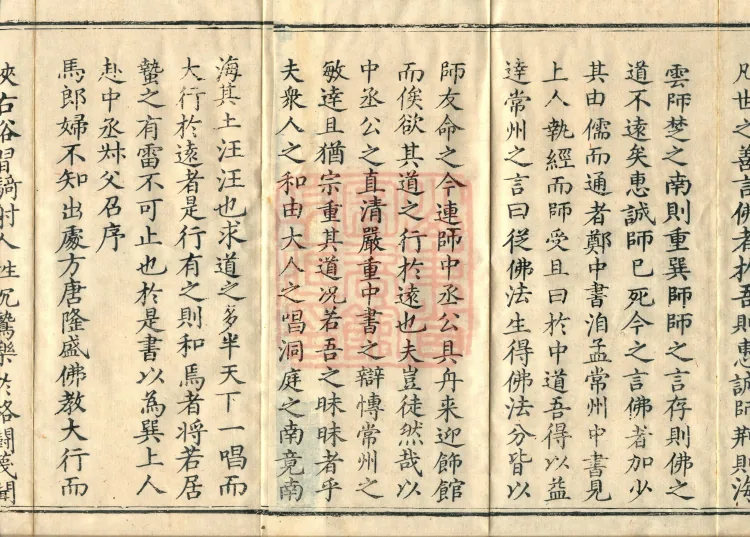 凡世之善言佛者於吾則惠誠師荆則海
雲師楚之南則重巽師師之言存則佛之
道不遠矣惠誠師巳死今之言佛者加少
其由儒而通者鄭中書洎孟常州中書見
上人執經而師受且曰於中道吾得以益
達常州之言曰従佛法生得佛法分皆以
師友命之今連師中丞公具舟来迎飾館
而俟欲其道之行於遠也夫豈徒然哉以
中丞公之直清嚴重中書之辯愽常州之
敏逹且猶宗重其道况若吾之昧昧者乎
夫衆人之和由大人之唱洞庭之南竟南
海其土汪汪也求道之多半天下一唱而
大行於遠者是行有之則和焉者将若居
蟄之有雷不可止也於是書以為巽上人
赴中丞叔父召序
馬郎婦不知出處方唐隆盛佛教大行而
陜右俗習騎射人性沉鷙樂於格鬪蔑聞